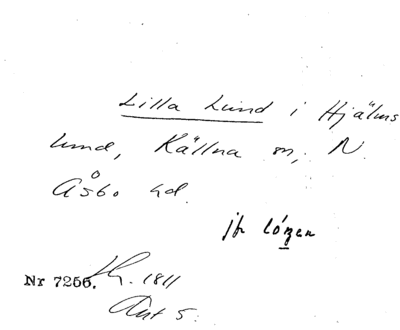 Lilla Lund i Hjälms
lund, Källna sn, N.
Åsbo hd.
jfr lózen
Nr 7256. 1811
Akt 5.